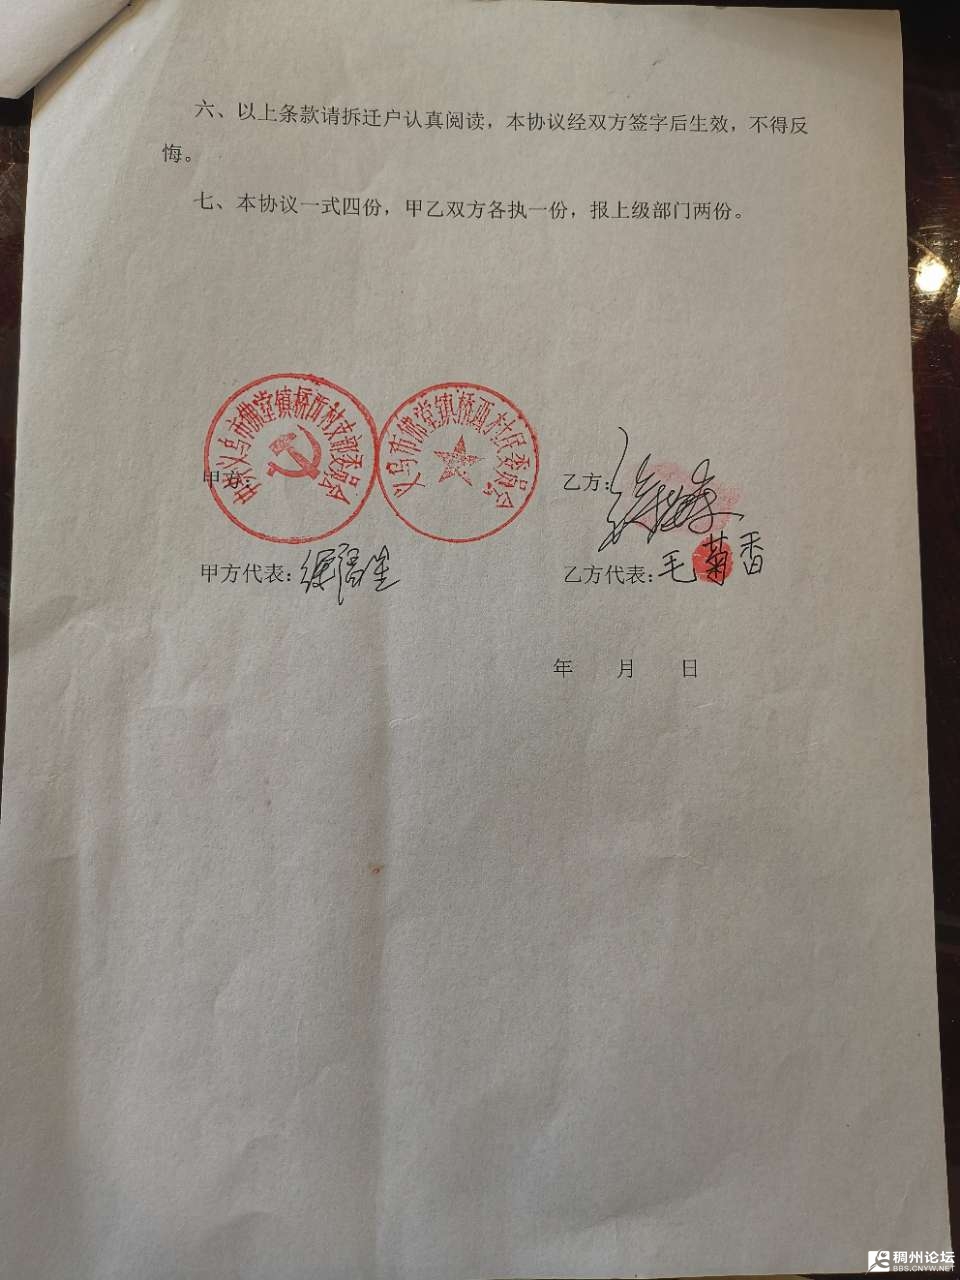 六、以上条款请拆迁户认真阅读，本协议经双方签字后生效，不得反
悔。
七、本协议一式四份，甲乙双方各执一份，报上级部门两份。
中共义乌市佛堂镇桥西村支部委员会
义乌市佛堂镇桥西村村民委员会
甲方：
乙方：
甲方代表：
乙方代表：毛菊香
年 月 日
稠州论坛
BBS.CNYW.NET